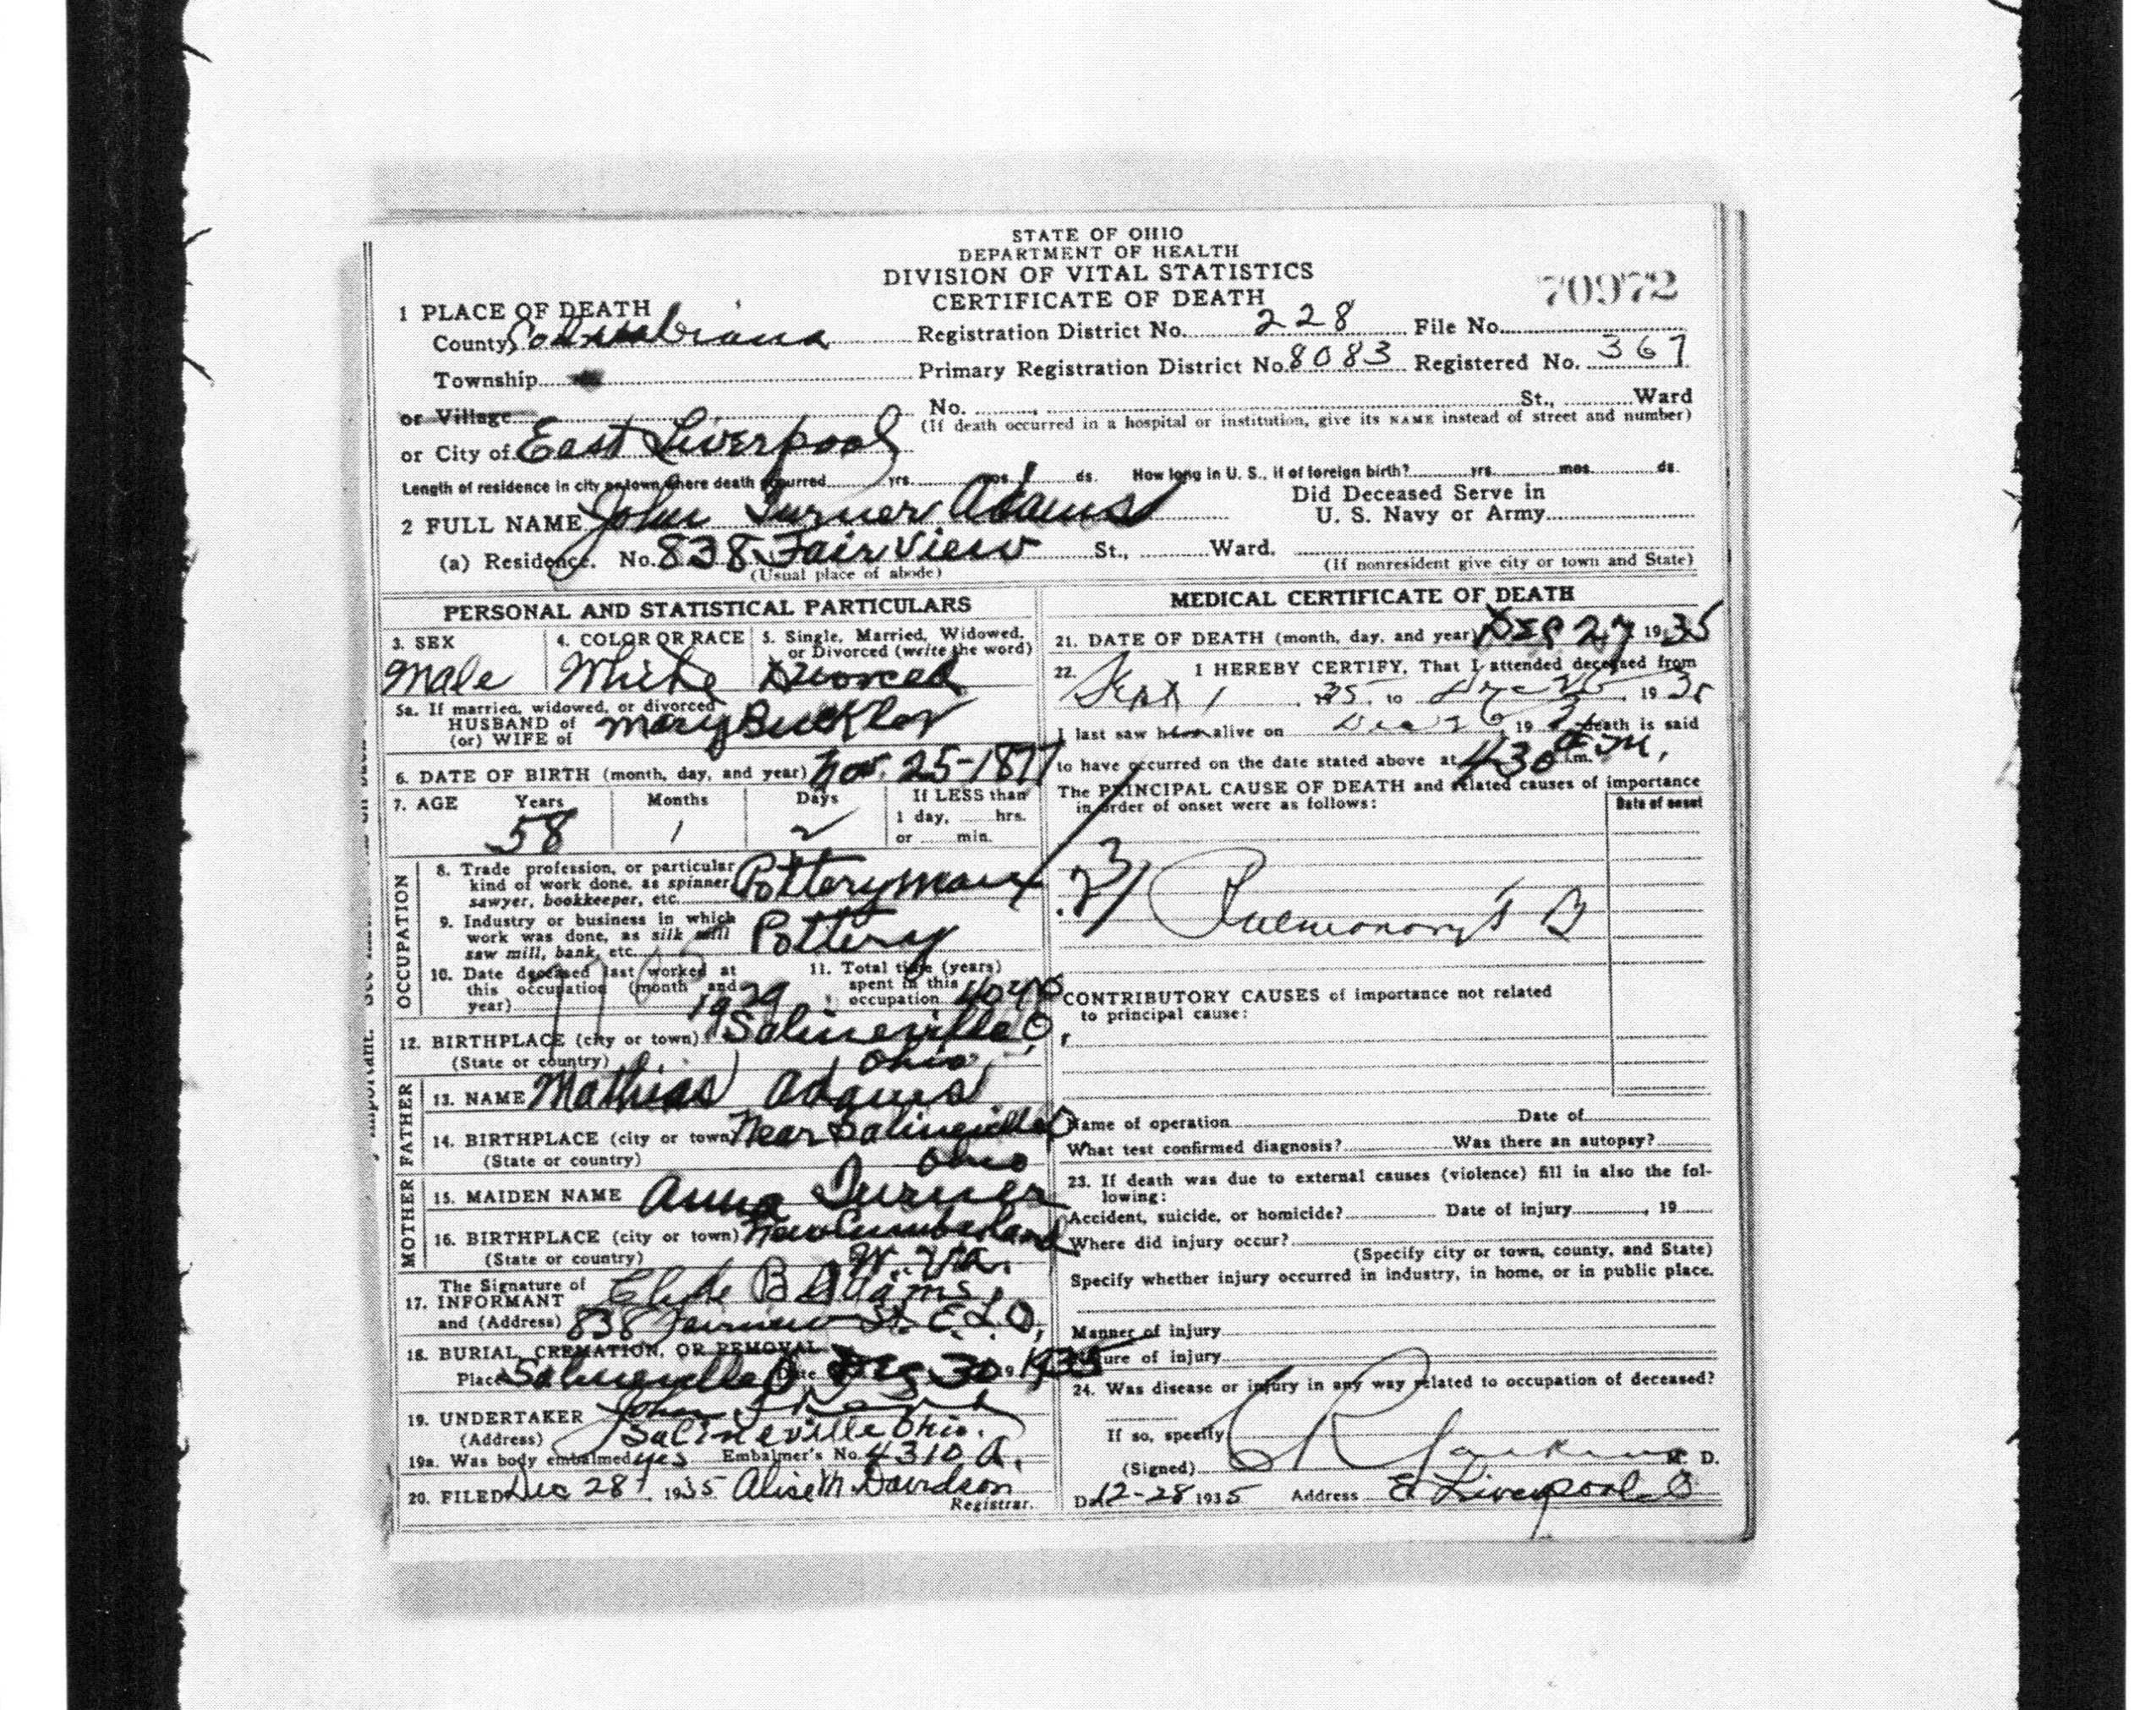 STATE OF OHIO
DEPARTMENT OF HEALTH
DIVISION OF VITAL STATISTICS
CERTIFICATE OF DEATH
70972
1 PLACE OF DEATH
County Columbiana Registration District No. 228 File No.
Township Primary Registration District No. 8083 Registered No. 367
or Village No. St., Ward
(If death occurred in a hospital or institution, give its NAME instead of street and number)
or City of East Liverpool
Length of residence in city or town where death occurred yrs. mos. ds. How long in U. S., if of foreign birth? yrs. mos. ds.
2 FULL NAME John Turner Adams Did Deceased Serve in
U. S. Navy or Army
(a) Residence. No. 838 Fairview St., Ward.
(Usual place of abode) (If nonresident give city or town and State)
PERSONAL AND STATISTICAL PARTICULARS
3. SEX 4. COLOR OR RACE 5. Single, Married, Widowed,
or Divorced (write the word)
Male White Divorced
5a. If married, widowed, or divorced
HUSBAND of Mary Buckler
(or) WIFE of
6. DATE OF BIRTH (month, day, and year) Nov. 25-1877
7. AGE Years Months Days If LESS than
1 day, hrs.
58 1 2 or min.
OCCUPATION
8. Trade profession, or particular
kind of work done, as spinner, Potteryman
sawyer, bookkeeper, etc.
9. Industry or business in which
work was done, as silk mill Pottery
saw mill, bank, etc.
10. Date deceased last worked at 11. Total time (years)
this occupation (month and spent in this
year) 1929 occupation 40 yrs
12. BIRTHPLACE (city or town) Salineville O.
(State or country) Ohio
FATHER
13. NAME Mathias Adams
14. BIRTHPLACE (city or town) Near Salineville O
(State or country) Ohio
MOTHER
15. MAIDEN NAME Anna Turner
16. BIRTHPLACE (city or town) New Cumberland
(State or country) W. Va.
The Signature of
17. INFORMANT Clyde B Adams
and (Address) 838 Fairview St. E. L. O.
18. BURIAL, CREMATION, OR REMOVAL
Place Salineville O Date Dec 30 1935
19. UNDERTAKER John
(Address) Salineville Ohio.
19a. Was body embalmed yes Embalmer's No. 4310 A.
20. FILED Dec 28 1935 Alise M. Davidson
Registrar.
MEDICAL CERTIFICATE OF DEATH
21. DATE OF DEATH (month, day, and year) Dec 27 1935
22. I HEREBY CERTIFY, That I attended deceased from
Sept 1 35 to Dec 26 1935
I last saw him alive on Dec 26 19 death is said
to have occurred on the date stated above at 430 a m.
The PRINCIPAL CAUSE OF DEATH and related causes of importance
in order of onset were as follows:
Date of onset
23
Pulmonary T B
CONTRIBUTORY CAUSES of importance not related
to principal cause:
Name of operation Date of
What test confirmed diagnosis? Was there an autopsy?
23. If death was due to external causes (violence) fill in also the fol-
lowing:
Accident, suicide, or homicide? Date of injury , 19
Where did injury occur?
(Specify city or town, county, and State)
Specify whether injury occurred in industry, in home, or in public place.
Manner of injury
Nature of injury
24. Was disease or injury in any way related to occupation of deceased?
If so, specify
(Signed) M. D.
Date 12-28 1935 Address E Liverpool O